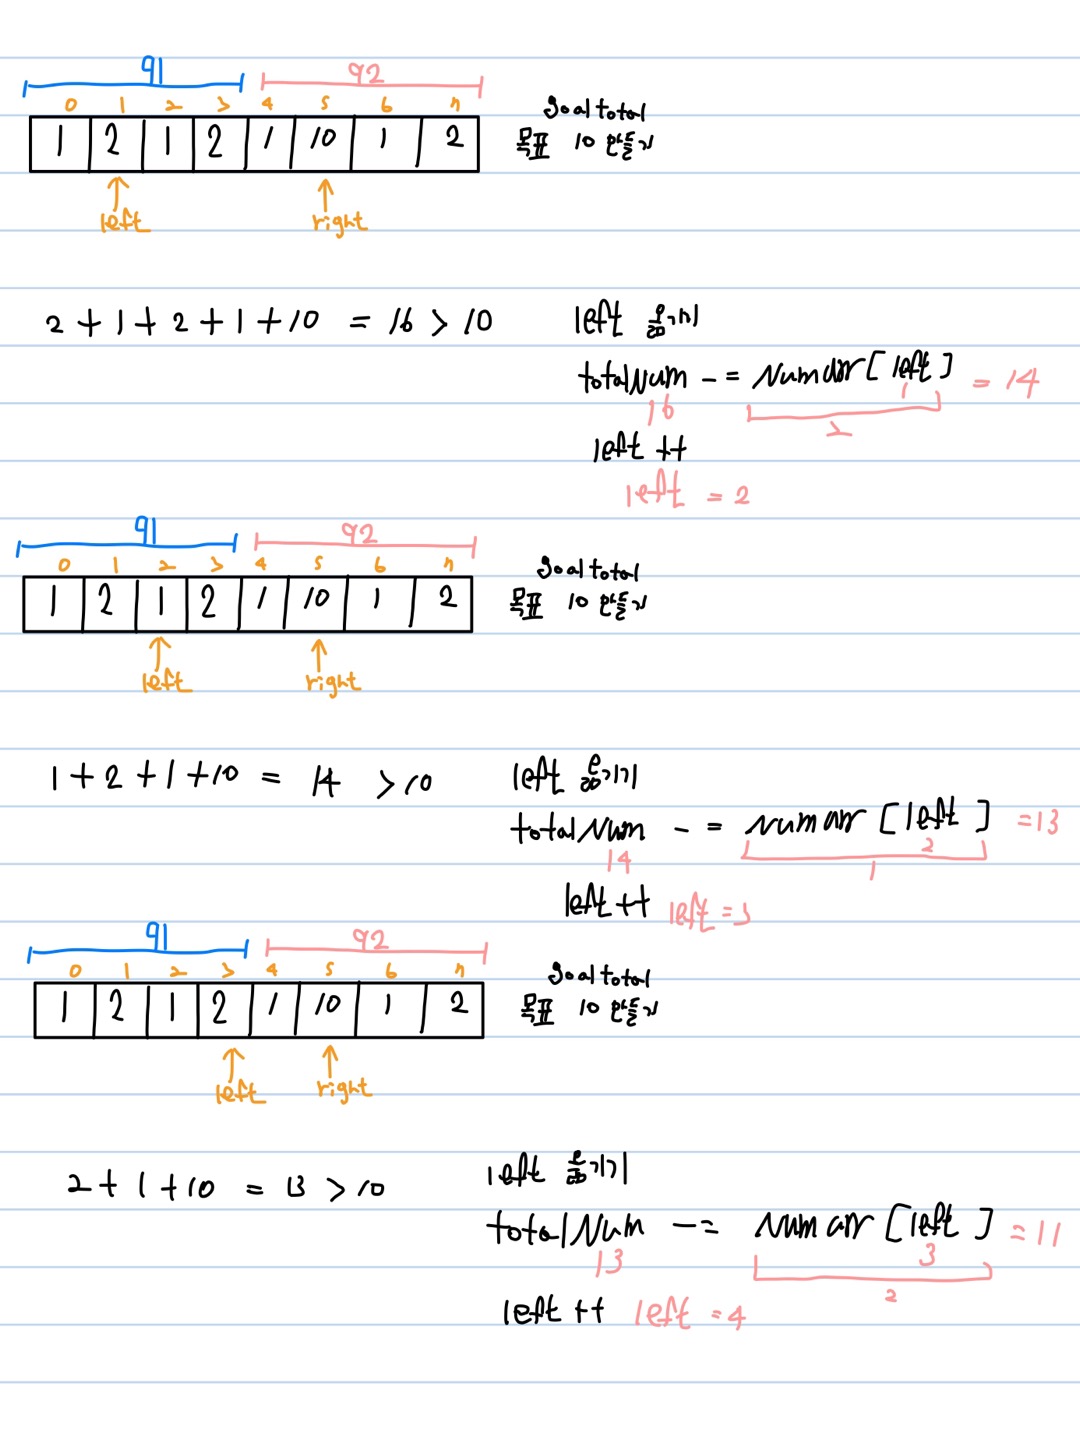 q1 q2
0 1 2 3 4 5 6 7
1 2 1 2 1 10 1 2
goal total
목표 10 만들기
left right
2 + 1 + 2 + 1 + 10 = 16 > 10
left 옮기기
totalNum -= Numarr [ left ] = 14
16 1 2
left ++
left = 2
q1 q2
0 1 2 3 4 5 6 7
1 2 1 2 1 10 1 2
goal total
목표 10 만들기
left right
1 + 2 + 1 + 10 = 14 > 10
left 옮기기
totalNum -= numarr [ left ] = 13
14 2 1
left ++ left = 3
q1 q2
0 1 2 3 4 5 6 7
1 2 1 2 1 10 1 2
goal total
목표 10 만들기
left right
2 + 1 + 10 = 13 > 10
left 옮기기
totalNum -= Numarr [ left ] = 11
13 3 2
left ++ left = 4